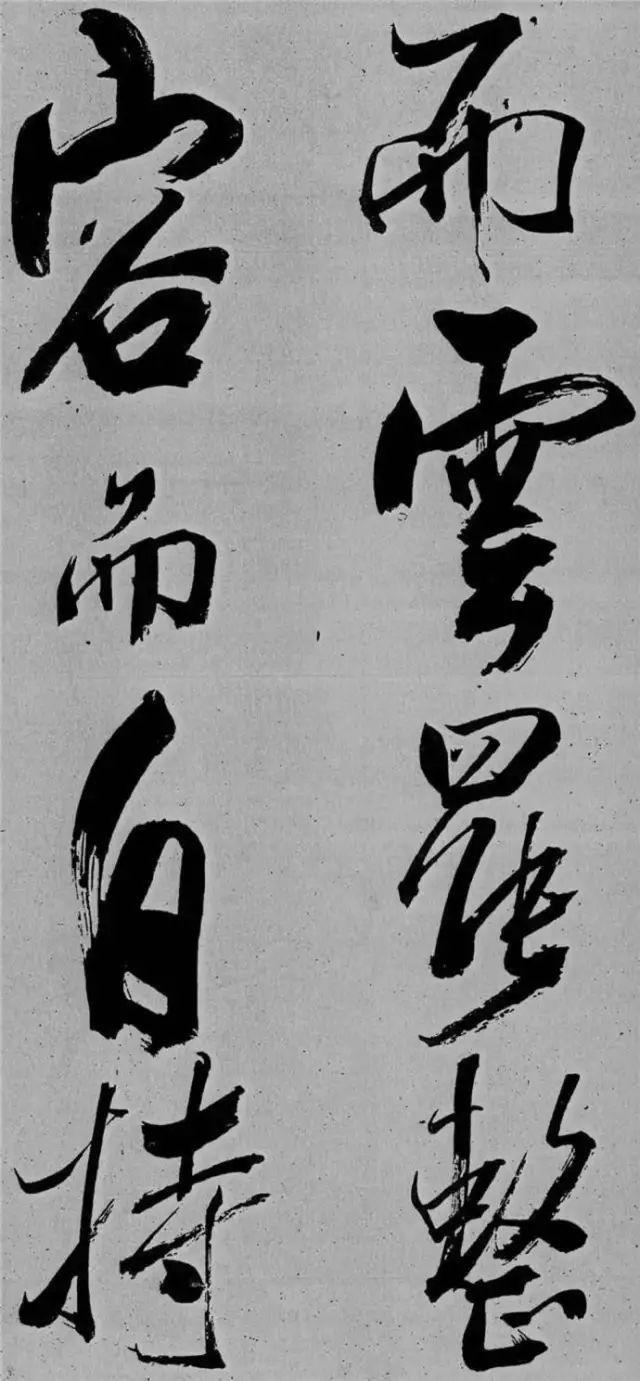 而雲罷整
容而自持